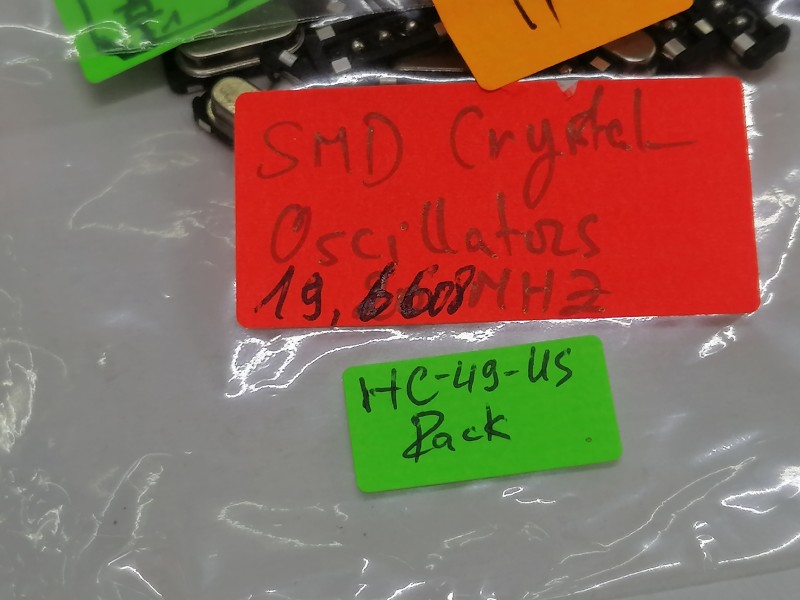 SMD Crystal
Oscillators
19,6608 MHZ
HC-49-US
Pack